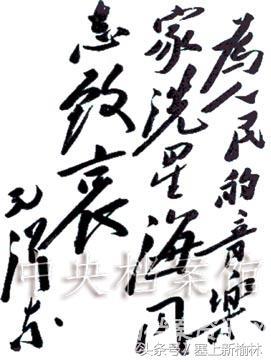 为人民的音樂
家洗星海同
志致哀
毛泽东
中央档案馆
头条号／塞上新榆林